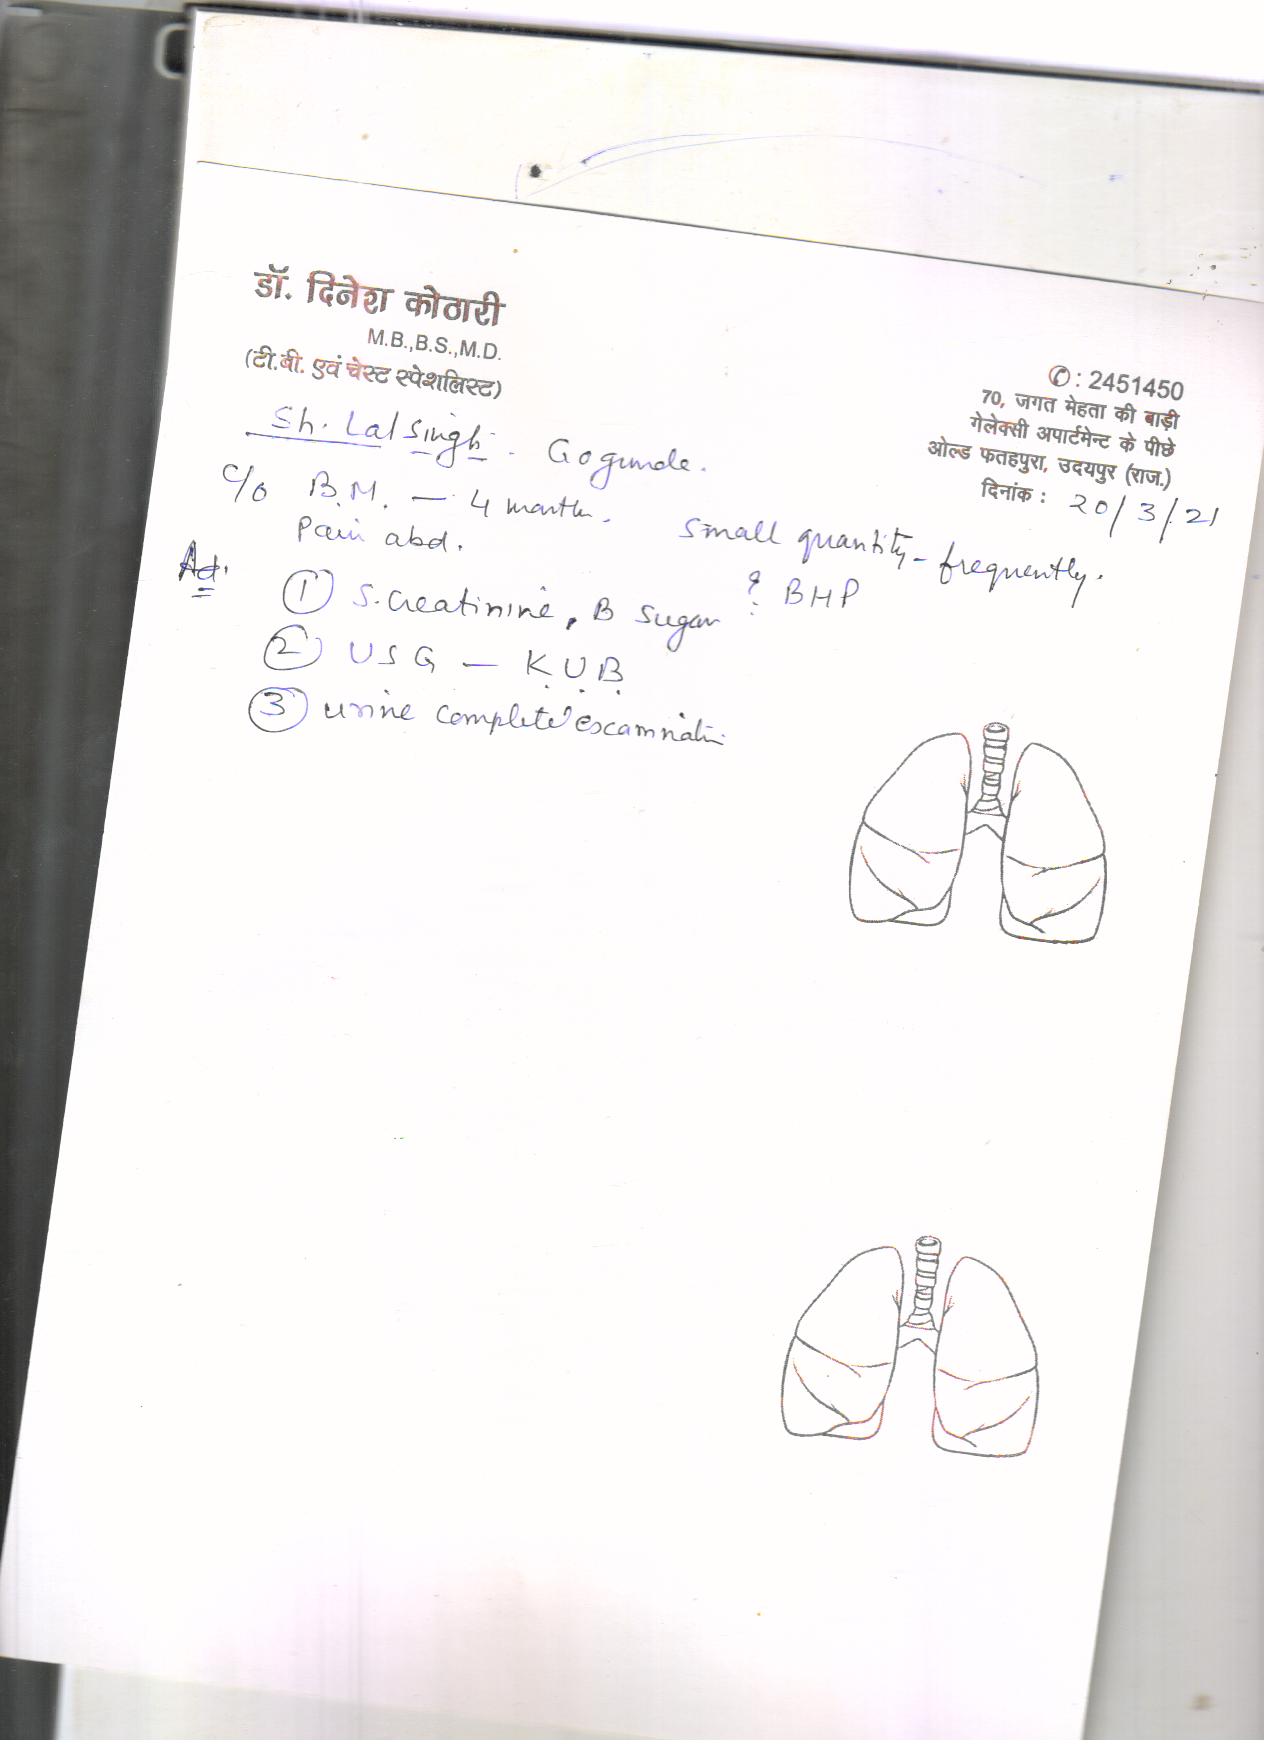 डॉ. दिनेश कोठारी
M.B.,B.S.,M.D.
(टी.बी. एवं चेस्ट स्पेशलिस्ट)
✆ : 2451450
70, जगत मेहता की बाड़ी
गेलेक्सी अपार्टमेन्ट के पीछे
ओल्ड फतहपुरा, उदयपुर (राज.)
दिनांक : 20/3/21
Sh. Lal Singh. Gogunda.
C/o B.M. — 4 months. Small quantity - frequently.
Pain abd.
? BHP
Ad.
① S. Creatinine, B Sugar
② USG — K.U.B.
③ urine complete examinati